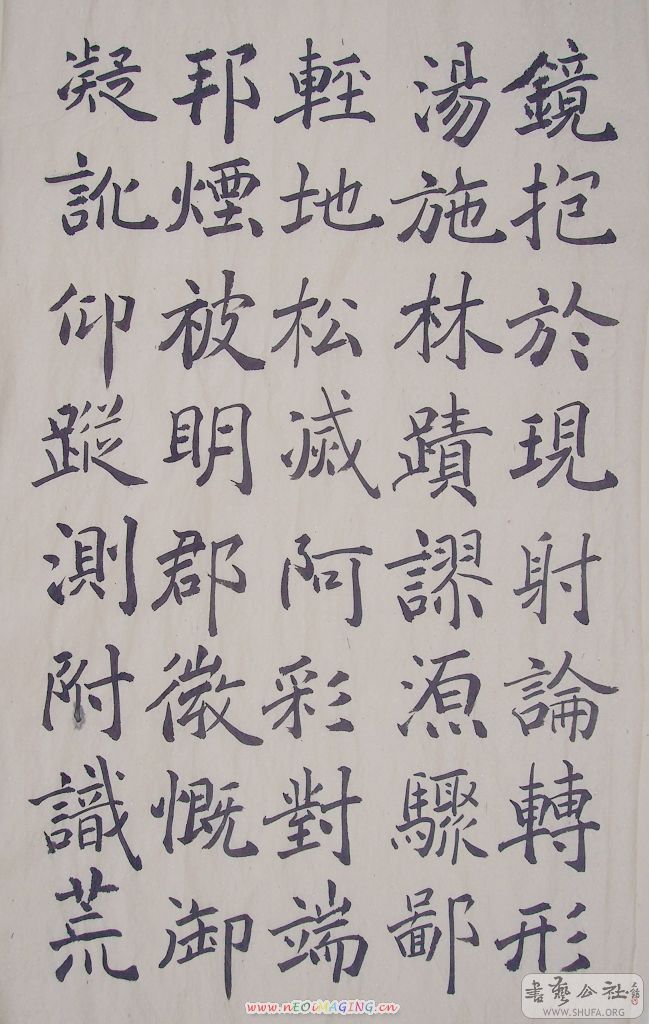 鏡抱於現射論轉形
湯施林蹟謬源驟鄙
輕地松滅阿彩對端
邦煙被明郡微慨御
凝訛仰蹤測附識荒
www.nEOiMAGING.cn
書藝公社
WWW.SHUFA.ORG